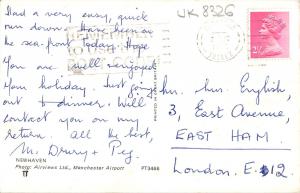 UK 8326
Had a very easy, quick
run down. Have been on
the sea-front today. Hope
you are well & enjoyed
your holiday. Just going
out to dinner. Will
contact you on my
return. All the best,
M. Drury + Peg.
NEWHAVEN
Photo: Airviews Ltd., Manchester Airport
PT3468
PRINTED IN GREAT BRITAIN
2½P
Mr. & Mrs. English,
3, East Avenue,
EAST HAM.
London. E.12.